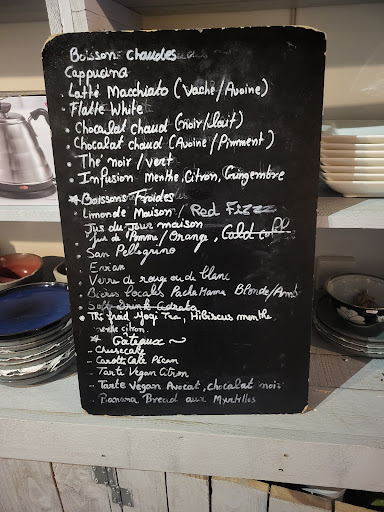 Boisson Chaudes
Cappucino
Latte Macchiato (Vache/Avoine)
• Flatte White
• Chocolat chaud (noir/lait)
• Chocalat chaud (Avoine/Pimment)
• Thé noir / vert
• Infusion Menthe, Citron, Gingembre
* Boissons Froides
• Limonade Maison / Red Fizzz
Jus du Jour maison
• Jus de Pomme / Orange, Cold coff
• San Pellegrino
Evian
Verre de rouge ou de blanc
- Bières locales PachaMama Blonde/Amb
Soft Drink
• Thé froid Yogi Tea, Hibiscus menthe
menthe citron
* Gateaux ~
- Cheesecake
- Carotte Cake Pécan
- Tarte Vegan Citron
- Tarte Vegan Avocat, chocolat noir
- Banana Bread aux Myrtilles